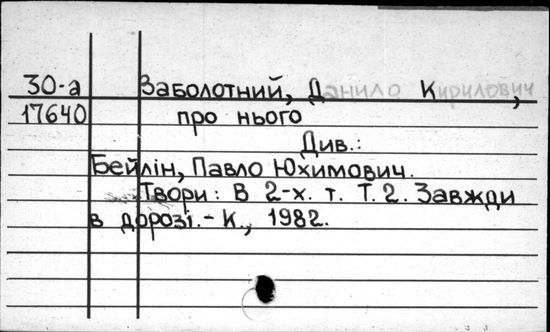 30-а Заболотний, Данило Кирилович,
17640 про нього
Див.:
Бейлін, Павло Юхимович.
Твори: В 2-х. т. Т. 2. Завжди
в дорозі.- К., 1982.